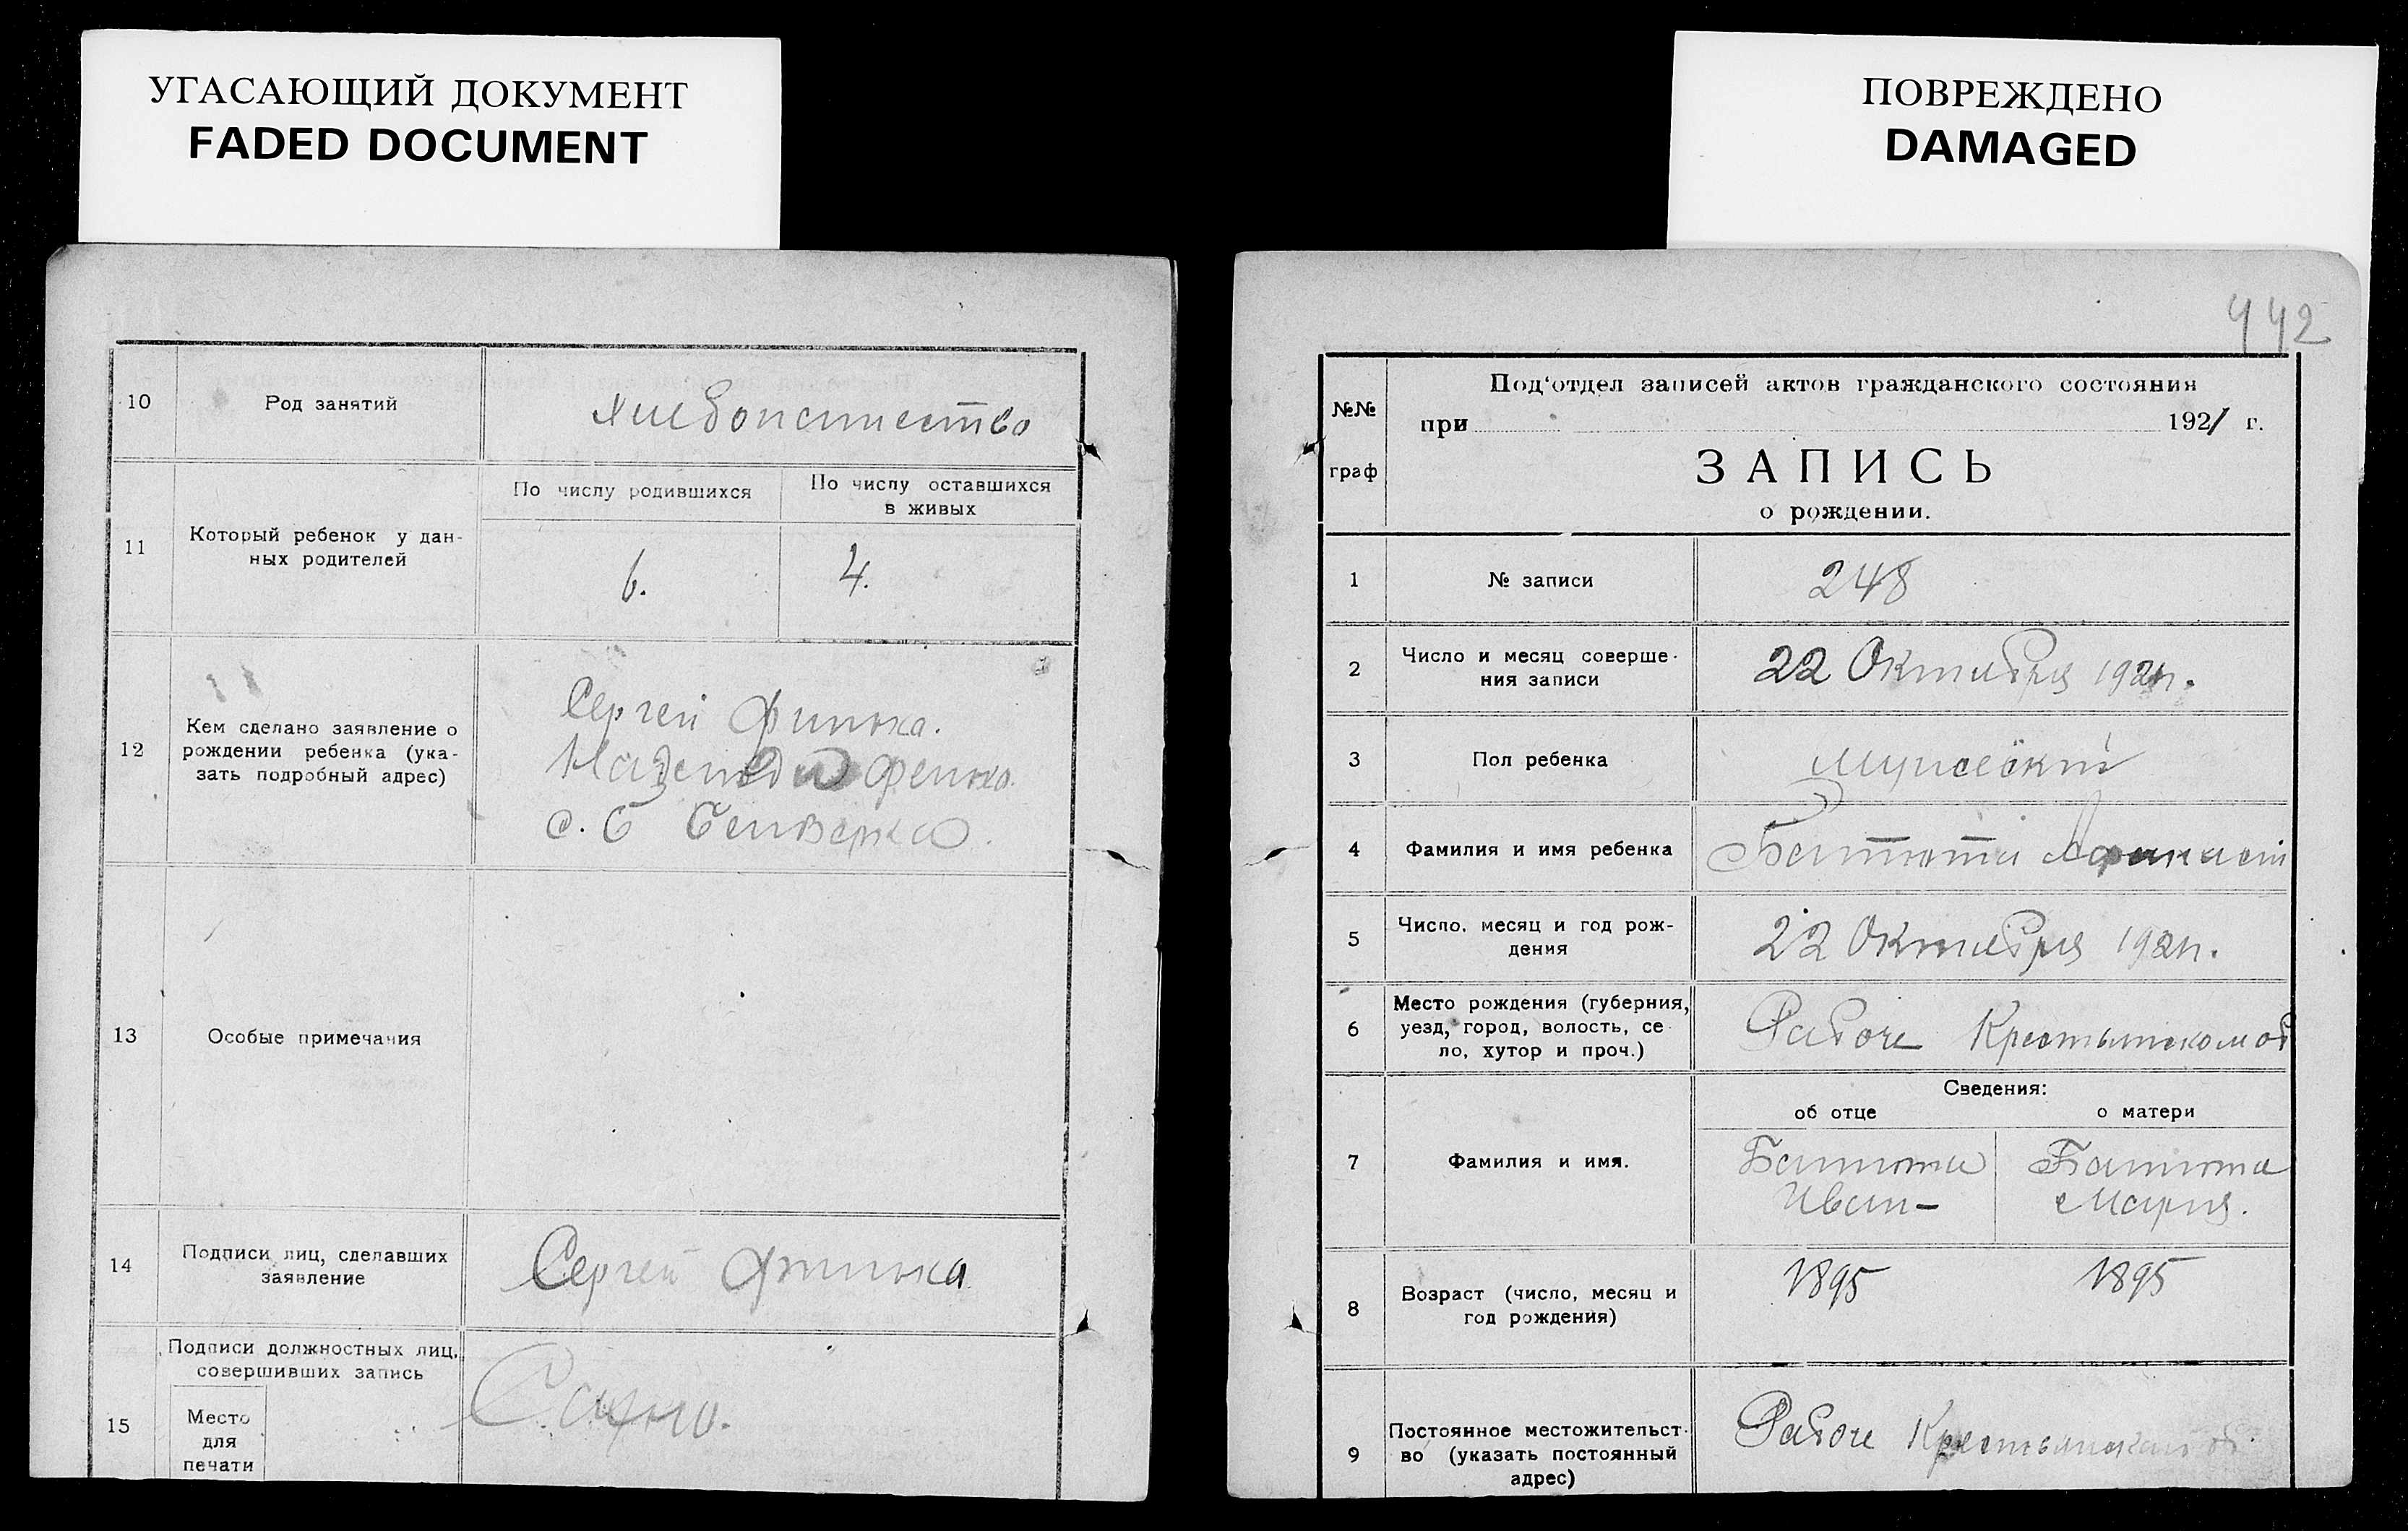 УГАСАЮЩИЙ ДОКУМЕНТ
FADED DOCUMENT
10
Род занятий
11
Который ребенок у дан-
ных родителей
По числу родившихся
По числу оставшихся
в живых
6.
4.
12
Кем сделано заявление о
рождении ребенка (ука-
зать подробный адрес)
Сергей
13
Особые примечания
14
Подписи лиц, сделавших
заявление
Сергей
15
Подписи должностных лиц,
совершивших запись
Место
для
печати
ПОВРЕЖДЕНО
DAMAGED
442
№№
граф
Под'отдел записей актов гражданского состояния
при 1921 г.
ЗАПИСЬ
о рождении.
1
№ записи
248
2
Число и месяц соверше-
ния записи
22 Октября 1921г.
3
Пол ребенка
мужской
4
Фамилия и имя ребенка
Афанасий
5
Число, месяц и год рож-
дения
22 Октября 1921г.
6
Место рождения (губерния,
уезд, город, волость, се-
ло, хутор и проч.)
Рабоче Крестьянском об
Сведения:
об отце
о матери
7
Фамилия и имя.
Батюта
Иван-
Батюта
Мария.
8
Возраст (число, месяц и
год рождения)
1895
1895
9
Постоянное местожительст-
во (указать постоянный
адрес)
Рабоче